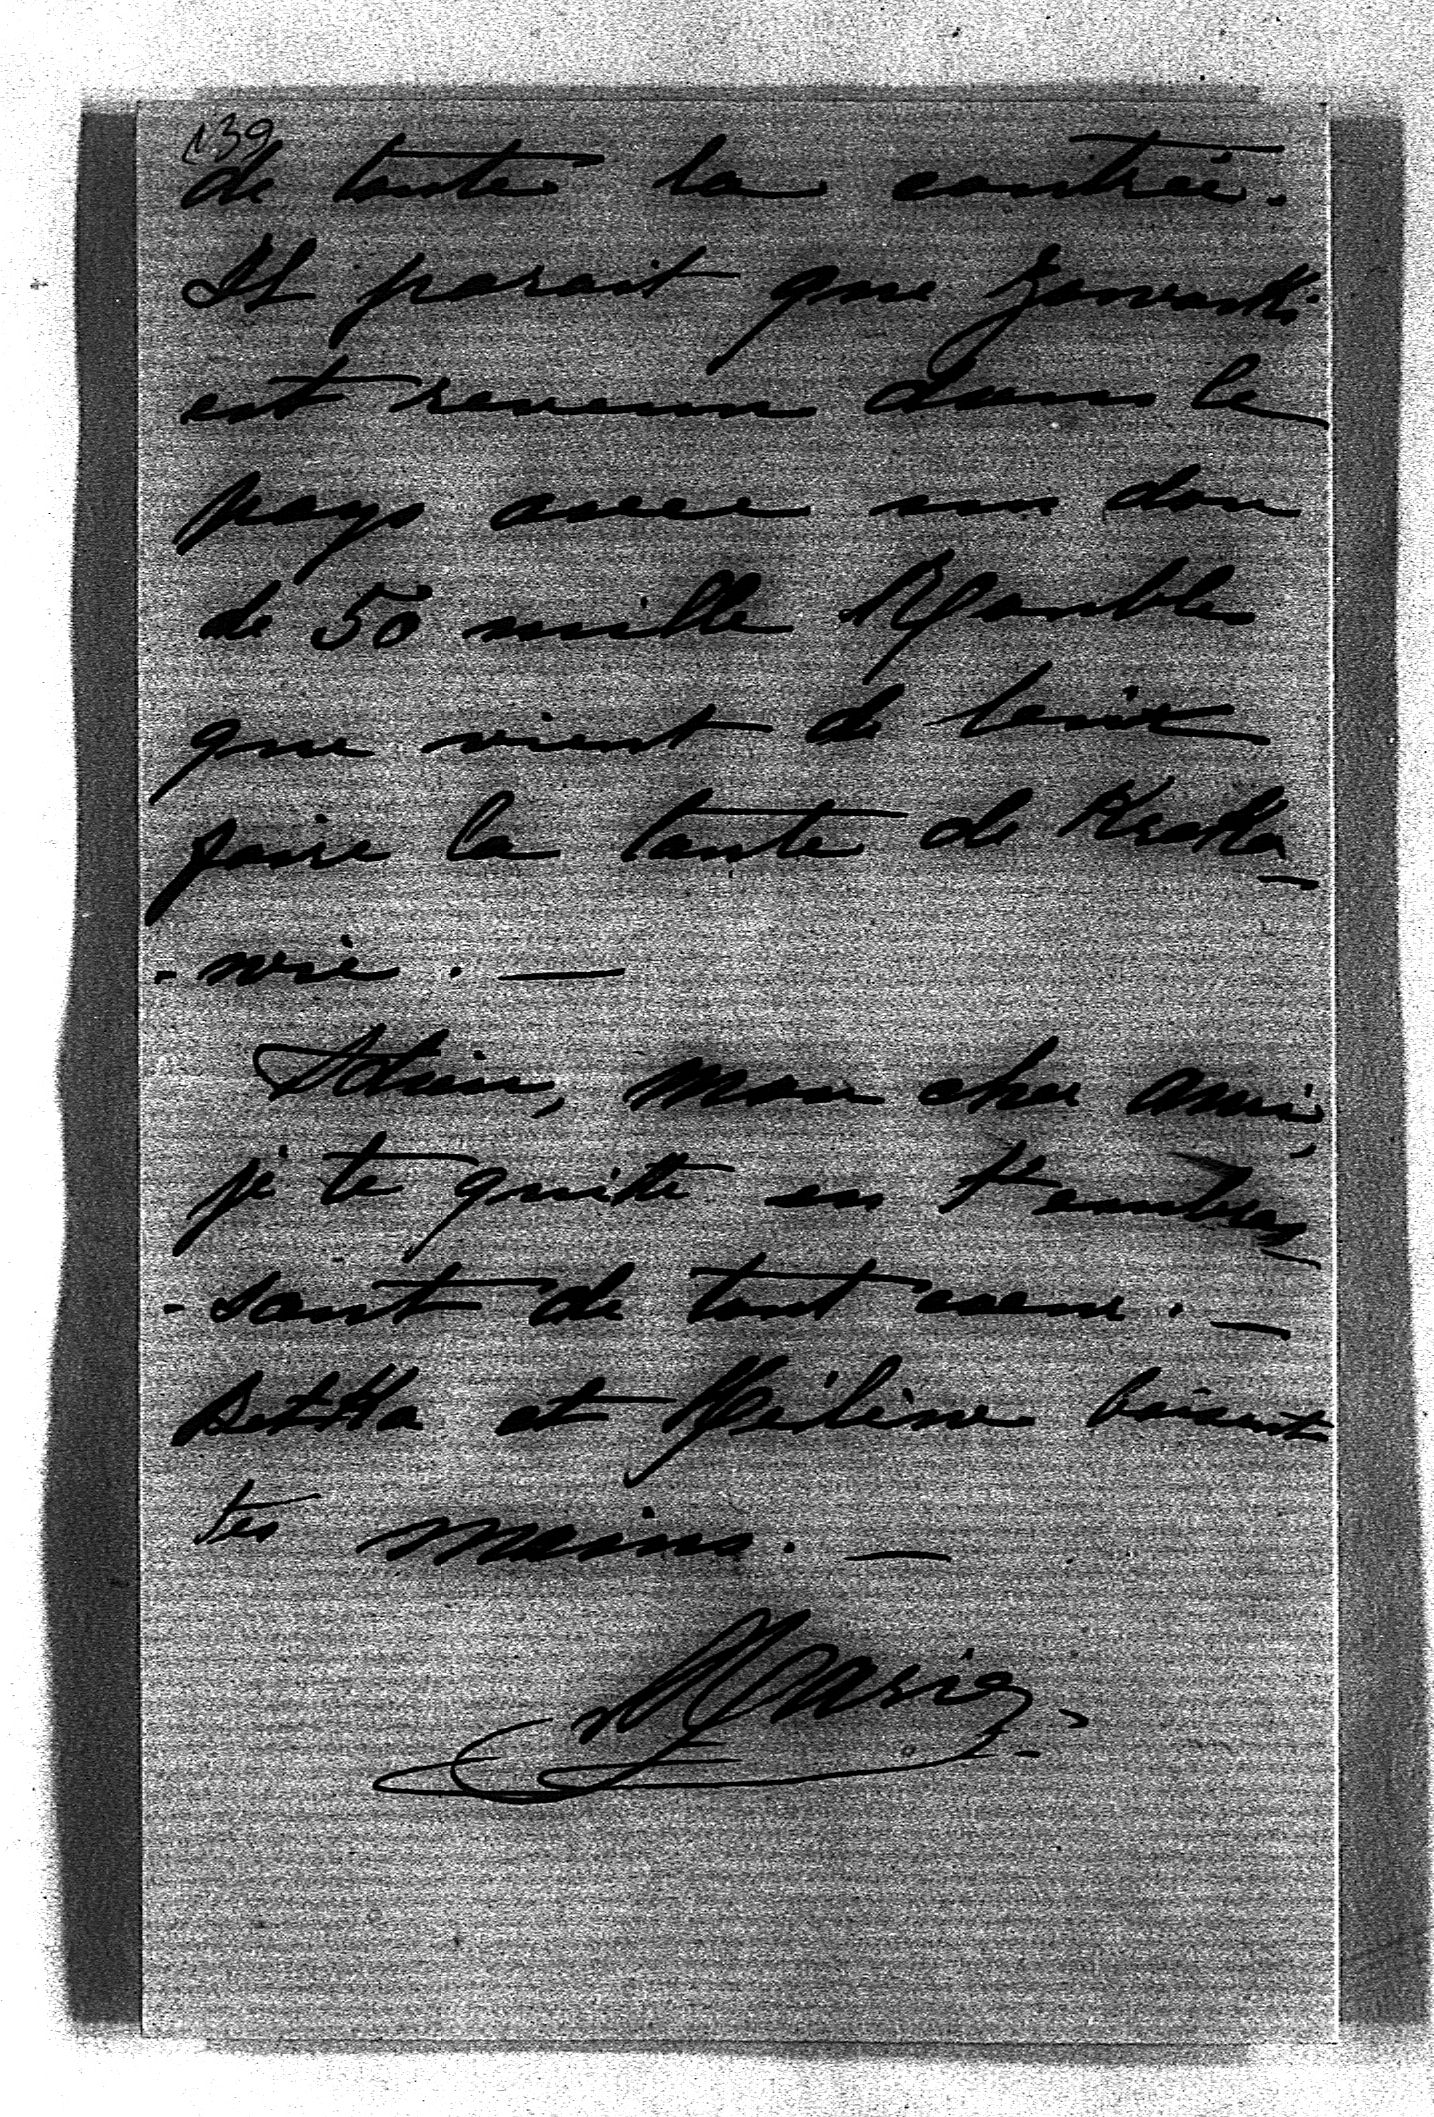 139
de toute la contrée.
Il parait que
est revenu dans le
pays avec un don
de 50 mille Roubles
que vient de lui
faire la tante de
Adieu, mon cher ami,
je te quitte en t'embras_
-sant de tout coeur. _
et Hélène baisent
tes mains. _
Marie.